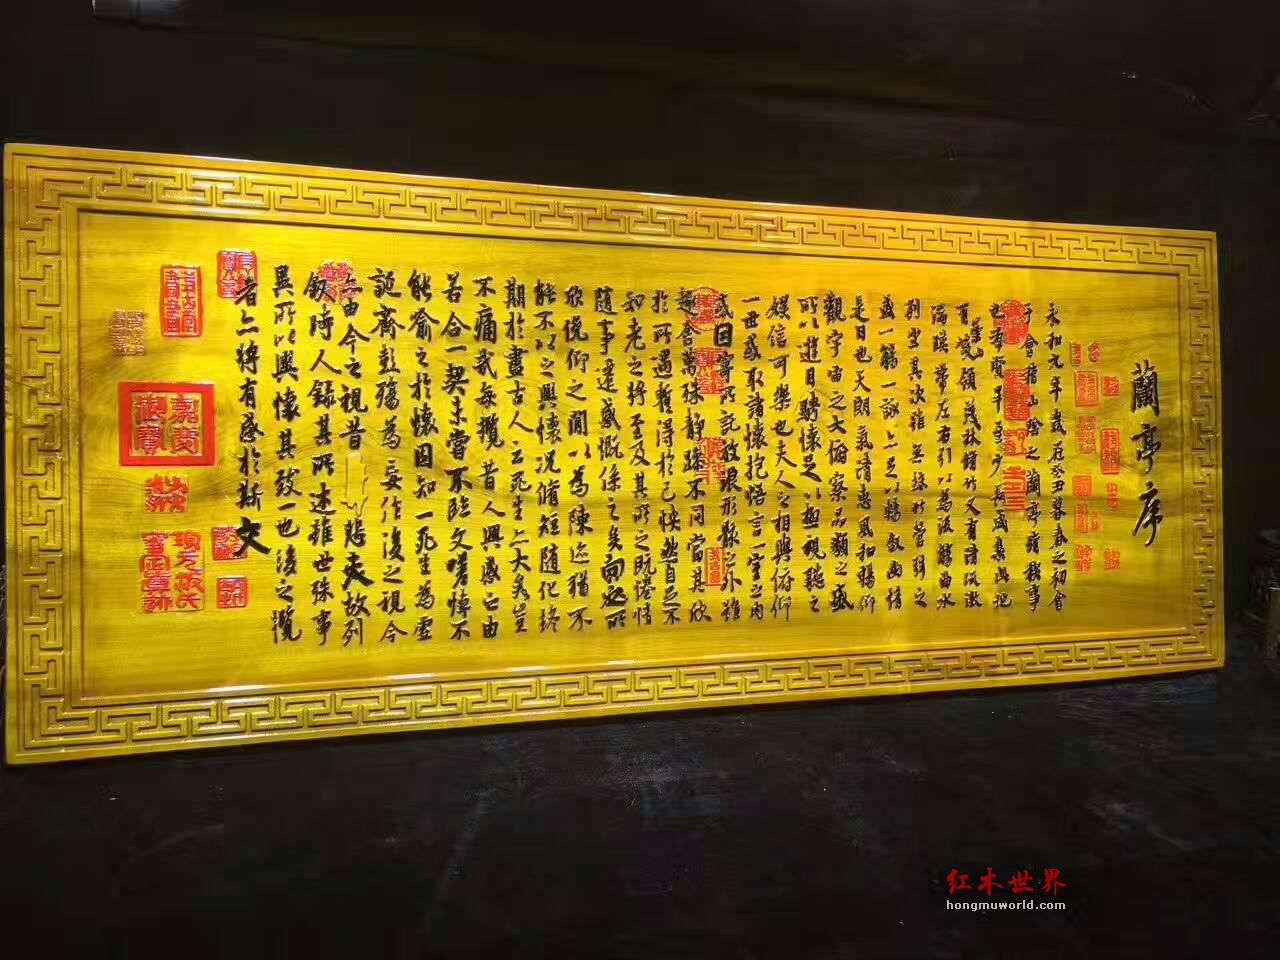 蘭亭序
永和九年歲在癸丑暮春之初會
于會稽山陰之蘭亭脩稧事
也羣賢畢至少長咸集此地
有崇山峻領茂林脩竹又有清流激
湍暎帶左右引以為流觴曲水
列坐其次雖無絲竹管弦之
盛一觴一詠亦足以暢敘幽情
是日也天朗氣清惠風和暢仰
觀宇宙之大俯察品類之盛
所以遊目騁懷足以極視聽之
娛信可樂也夫人之相與俯仰
一世或取諸懷抱悟言一室之內
或因寄所託放浪形骸之外雖
趣舍萬殊靜躁不同當其欣
於所遇暫得於己怏然自足不
知老之將至及其所之既惓情
隨事遷感慨係之矣向之所
欣俛仰之間以為陳迹猶不
能不以之興懷況脩短隨化終
期於盡古人云死生亦大矣豈
不痛哉每攬昔人興感之由
若合一契未嘗不臨文嗟悼不
能喻之於懷固知一死生為虛
誕齊彭殤為妄作後之視今
亦由今之視昔悲夫故列
敘時人錄其所述雖世殊事
異所以興懷其致一也後之攬
者亦將有感於斯文
红木世界
hongmuworld.com